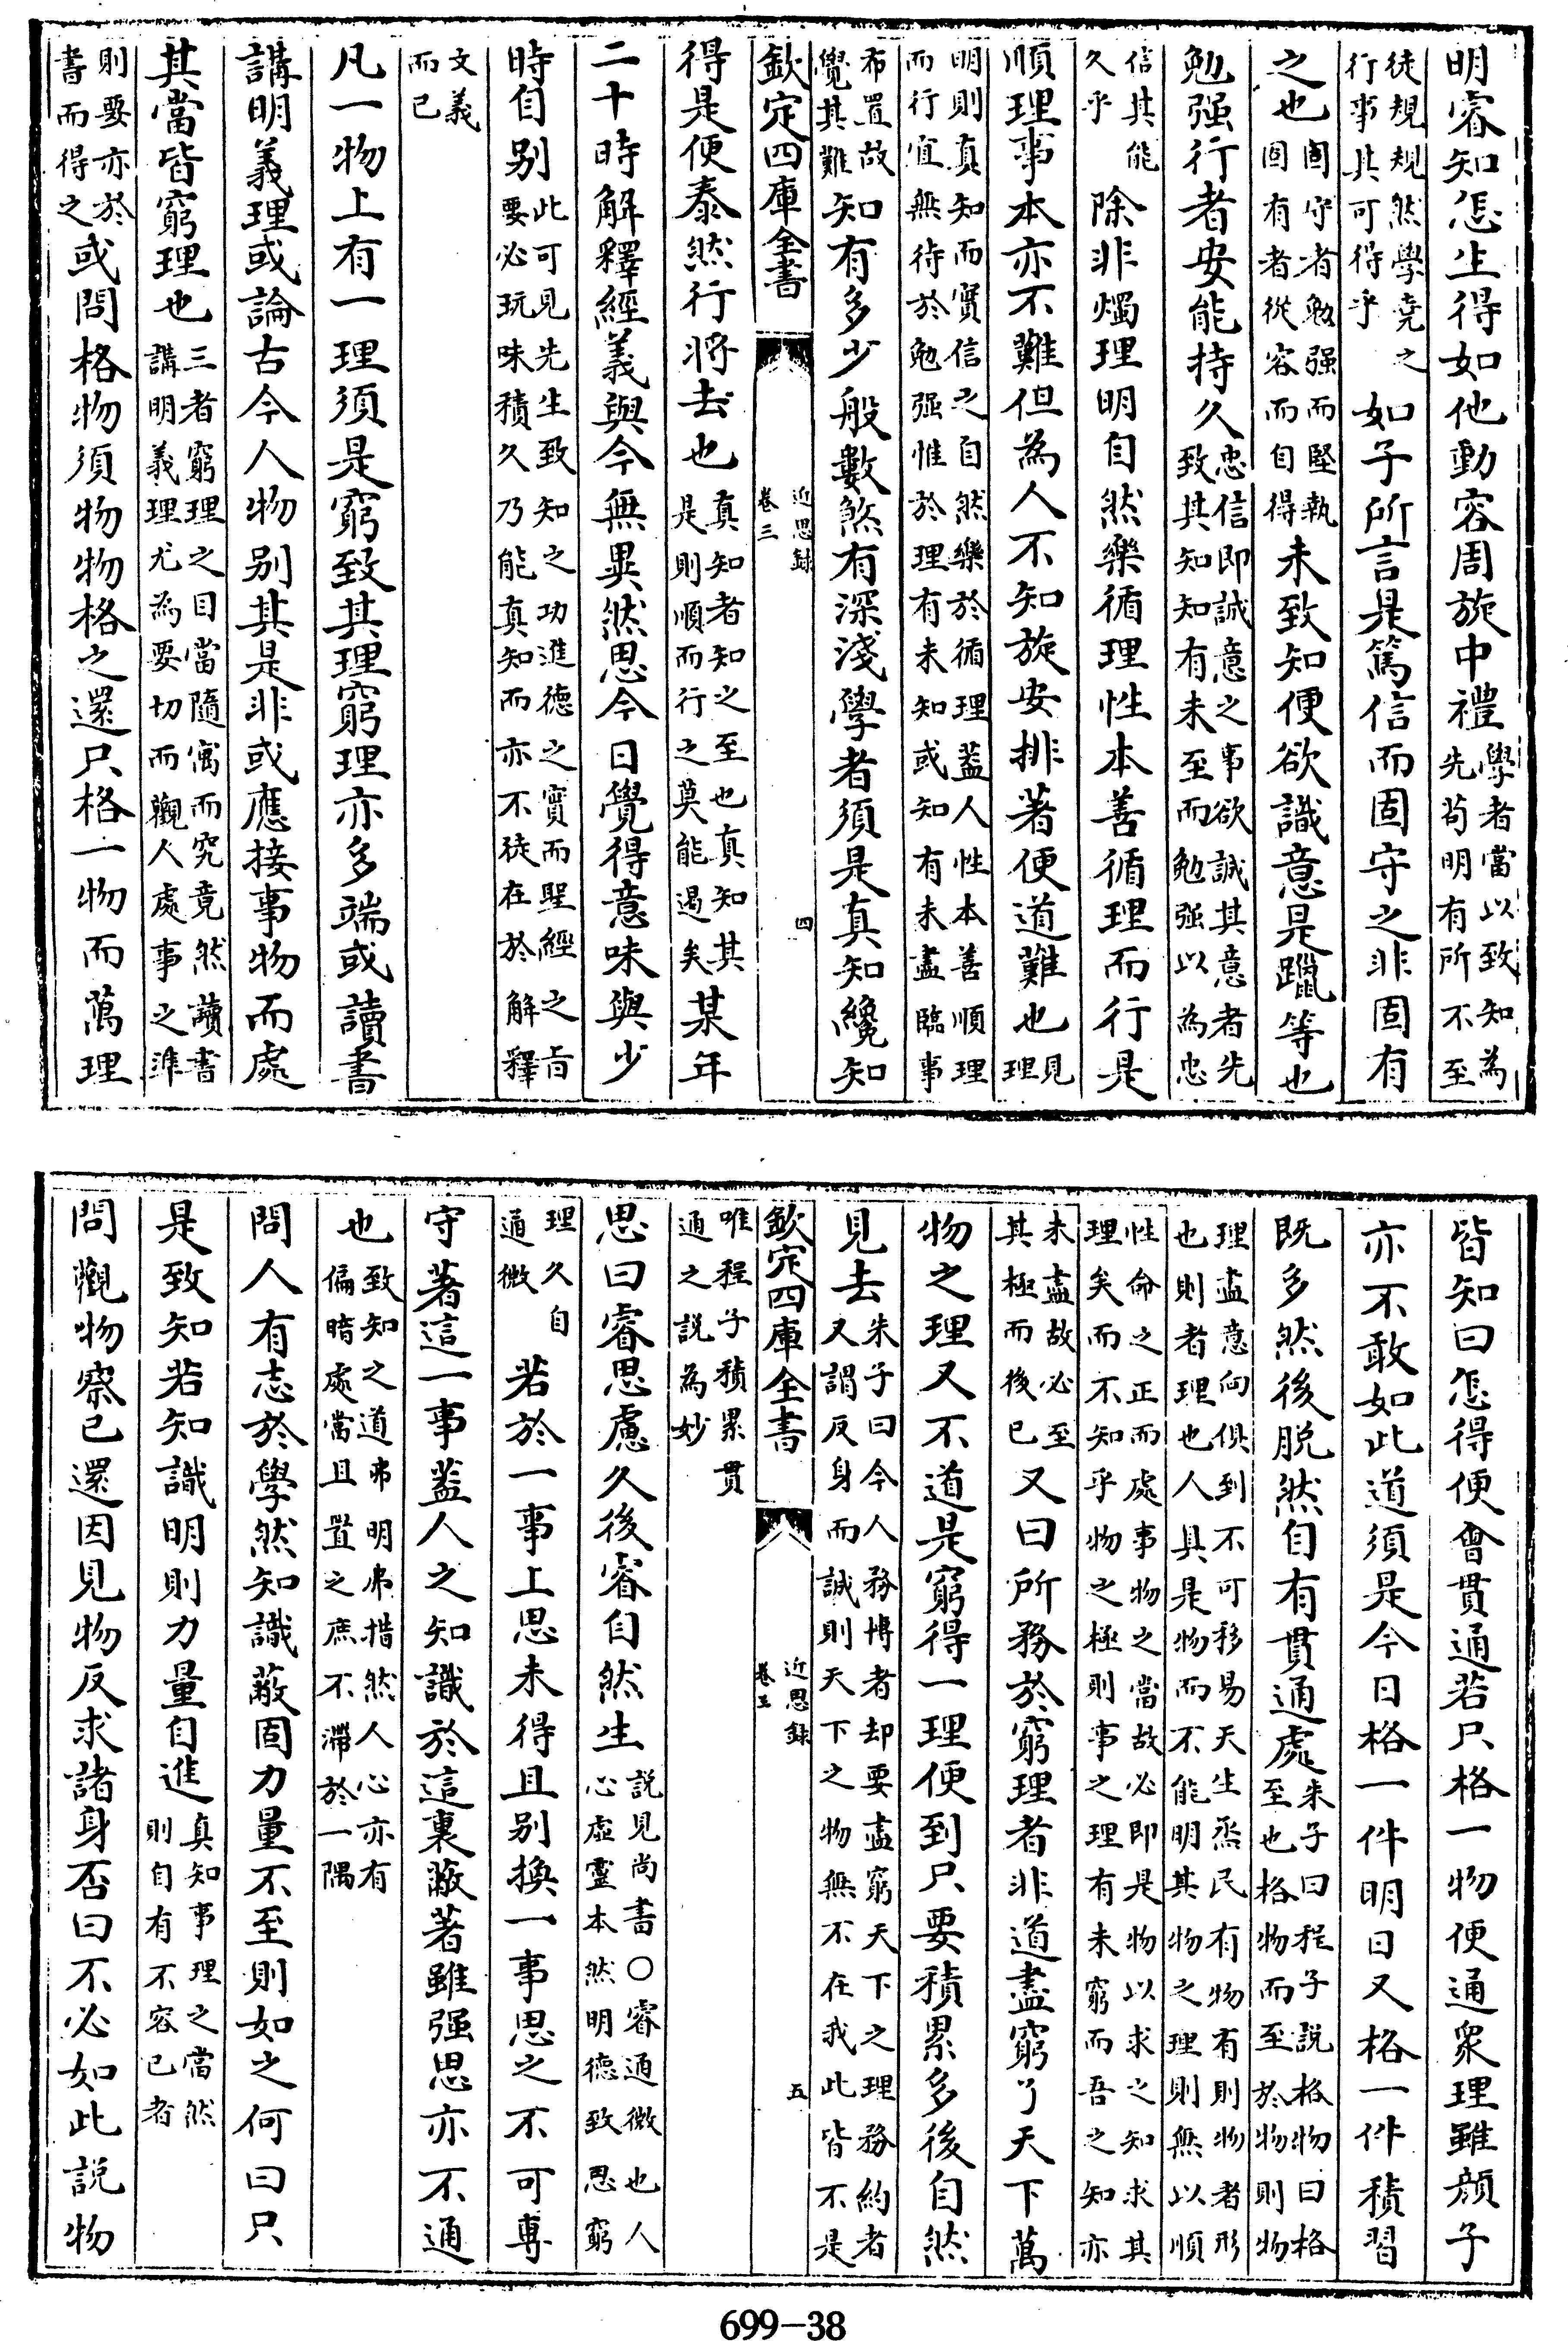 明睿知怎生得如他動容周旋中禮學者當以致知為先苟明有所不至
徒規規然學堯之行事其可得乎如子所言是篤信而固守之非固有
之也固守者勉强而堅執固有者從容而自得未致知便欲識意是躐等也
勉强行者安能持久忠信即誠意之事欲誠其意者先致其知知有未至而勉强以為忠
信其能久乎除非燭理明自然樂循理性本善循理而行是
順理事本亦不難但為人不知旋安排著便道難也見理
明則真知而實信之自然樂於循理葢人性本善順理而行宜無待於勉强惟於理有未知或知有未盡臨事
布置故覺其難知有多少般數煞有深淺學者須是真知纔知
欽定四庫全書
近思録
卷三
四
得是便泰然行将去也真知者知之至也真知其是則順而行之莫能遏矣某年
二十時解釋經義與今無異然思今日覺得意味與少
時自别此可見先生致知之功進德之實而聖經之㫖要必玩味積久乃能真知而亦不徒在於解釋
文義而已
凡一物上有一理須是窮致其理窮理亦多端或讀書
講明義理或論古今人物别其是非或應接事物而處
其當皆窮理也三者窮理之目當隨寓而究竟然讀書講明義理尤為要切而觀人處事之準
則要亦於書而得之或問格物須物物格之還只格一物而萬理
皆知曰怎得便會貫通若只格一物便通衆理雖顔子
亦不敢如此道須是今日格一件明日又格一件積習
既多然後脱然自有貫通處朱子曰程子説格物曰格至也格物而至於物則物
理盡意向俱到不可移易天生烝民有物有則物者形也則者理也人具是物而不能明其物之理則無以順
性命之正而處事物之當故必即是物以求之知求其理矣而不知乎物之極則事之理有未窮而吾之知亦
未盡故必至其極而後已又曰所務於窮理者非道盡窮了天下萬
物之理又不道是窮得一理便到只要積累多後自然
見去朱子曰今人務博者却要盡窮天下之理務約者又謂反身而誠則天下之物無不在我此皆不是
欽定四庫全書
近思録
卷三
五
唯程子積累貫通之説為妙
思曰睿思慮久後睿自然生説見尚書○睿通微也人心虚靈本然明德致思窮
理久自通微若於一事上思未得且别換一事思之不可專
守著這一事葢人之知識於這裏蔽著雖强思亦不通
也致知之道弗明弗措然人心亦有偏暗處當且置之庶不滯於一隅
問人有志於學然知識蔽固力量不至則如之何曰只
是致知若知識明則力量自進真知事理之當然則自有不容已者
問觀物察已還因見物反求諸身否曰不必如此説物
699-38